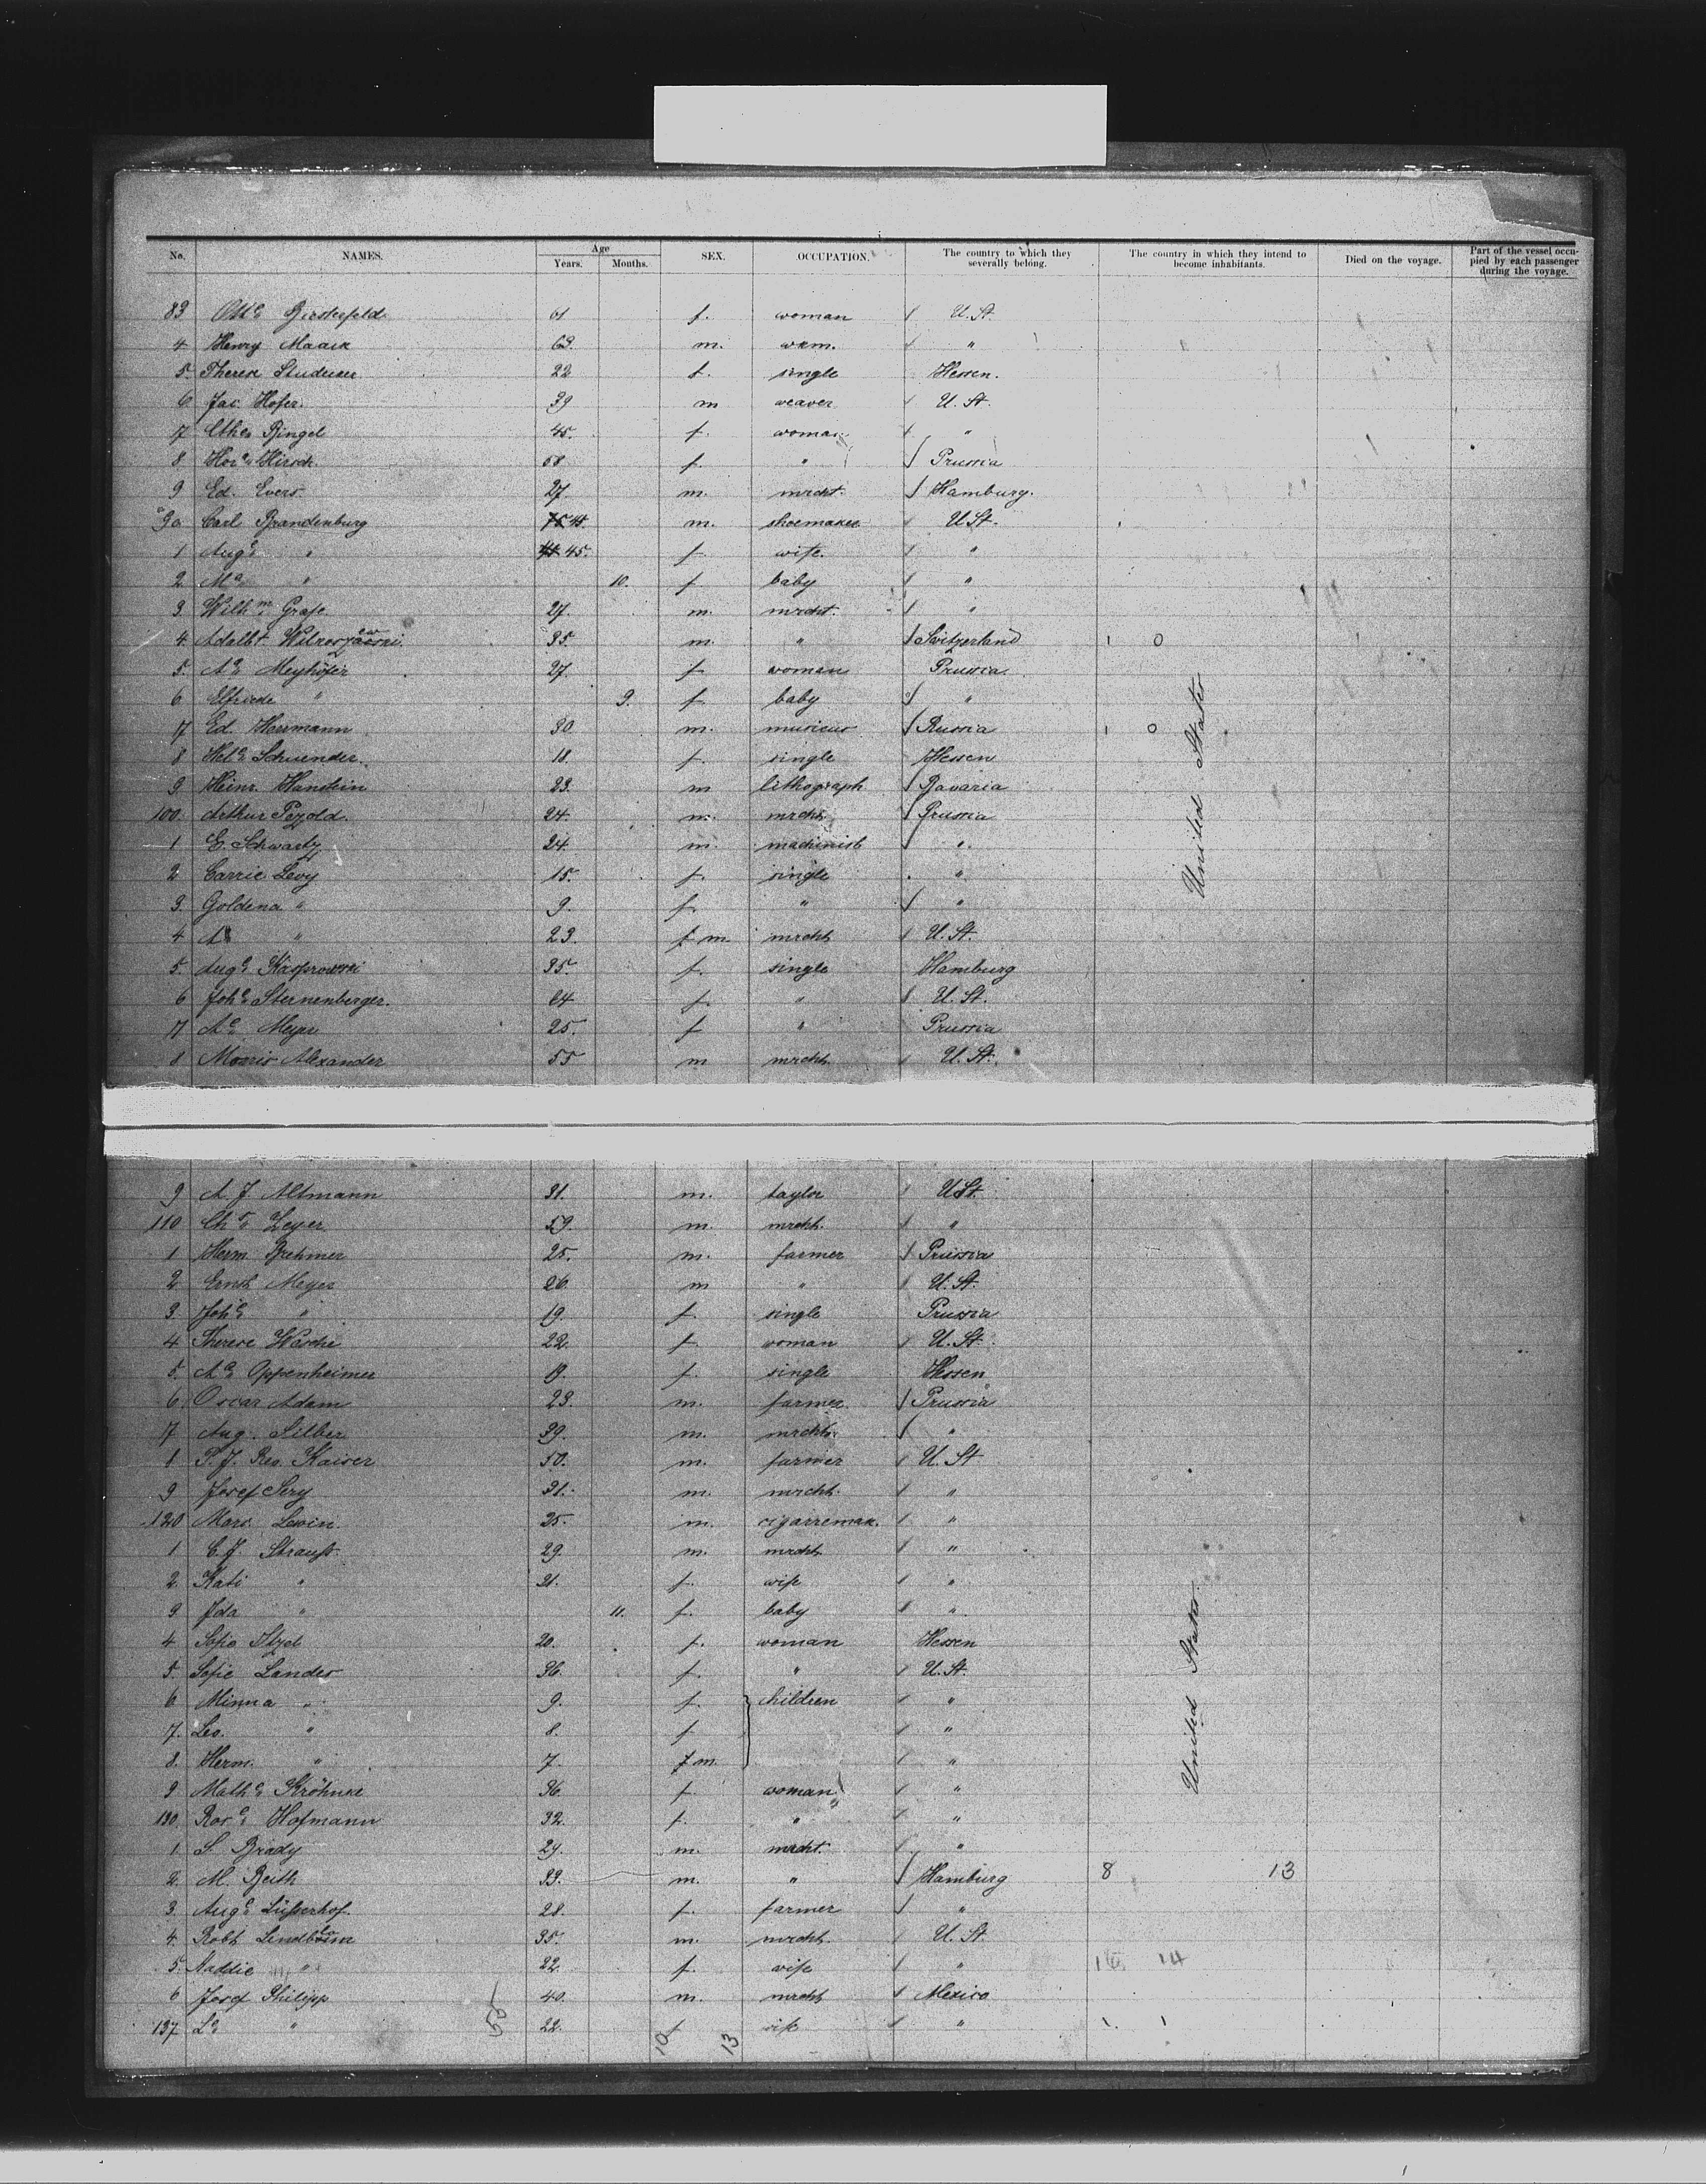 No. NAMES. Age Years. Months. SEX. OCCUPATION. The country to which they severally belong. The country in which they intend to become inhabitants. Died on the voyage. Part of the vessel occupied by each passenger during the voyage.
83 61 f. woman U. St.
4 Henry Maack 63. m. " 
5. Therese 22 f. single Hessen.
6 Jac. Hofer. 39 m weaver U. St.
7 Ringel 45. f. woman "
8 Hirsch 58 f. " Prussia
9 Ed. Evers 27 m. mrcht. Hamburg.
90 Carl Brandenburg 45. m. shoemaker U St.
1 Auge " 45. f. wife. "
2 Ma " 10. f baby "
3. Wilhm Grafe 27. m. mrcht. "
4. Adalbt. 35. m. " Switzerland 1 0
5. Ae Meyhöfer 27. f woman Prussia
6 Elfriede " 9. f baby "
7 Ed. Herrmann 30. m. musicus Russia 1 0
8 Hele Schuender. 18. f. single Hessen
9 Heinr. Hanstein 23. m lithograph Bavaria
100. Arthur Pezold. 24. m. mrcht. Prussia
1 E. Schwartz 24 m. machinist "
2 Carrie Levy 15. f. single "
3. Goldena " 9. f. " "
4 " 23. f m. mrcht U. St.
5. Auge Kasprowski 35. f. single Hamburg
6 Johe Sternenberger. 64 f. " U. St.
7 Ae Meyer 25. f " Prussia
8 Morris Alexander 55 m mrcht. U. St.
United States
9 A. J. Altmann 31. m. taylor U St.
110 Chr Zeyer 59. m. mrcht. "
1 Herm. Brehmer 25. m. farmer Prussia
2 Ernst Meyer 26. m " U. St.
3. Johe " 19. f. single Prussia
4 Therese Wasche 22. f. woman U. St.
5. Ae Oppenheimer f. single Hessen
6 Oscar Adam 23. m. farmer Prussia
7 Aug. Silber 39. m. mrcht. "
8 P. J. Rev. Kaiser 50. m. farmer U. St
9 Josef Sery 31. m. mrcht. "
120 Marc. Lewin. 25. m. cigarremak. "
1 C. J. Strauss 29. m. mrcht "
2. Kati " 21. f. wife "
3 Ida " 11. f. baby "
4 Sofie Itzel 20. f. woman Hessen
5. Sofie Lander 36. f. " U. St.
6 Minna " 9. f. children "
7. Leo. " 8. f "
8. Herm. " 7. f m. "
9 Mathe Kröhnke 36. f woman "
130 Rose Hofmann 32. f. " "
1. S. Brady 29. m. mrcht. "
2. M. Beith 33. m. " Hamburg 8 13
3. Auge Lüsserhof. 28. f. farmer "
4. Robt. 35. m. mrcht. U. St.
5. Maddie " 22. f. wife " 14
6 Josef Philipp 40. m. mrcht Mexico
137. Le " 22. f wife " 1. 1
United States
55 10 13